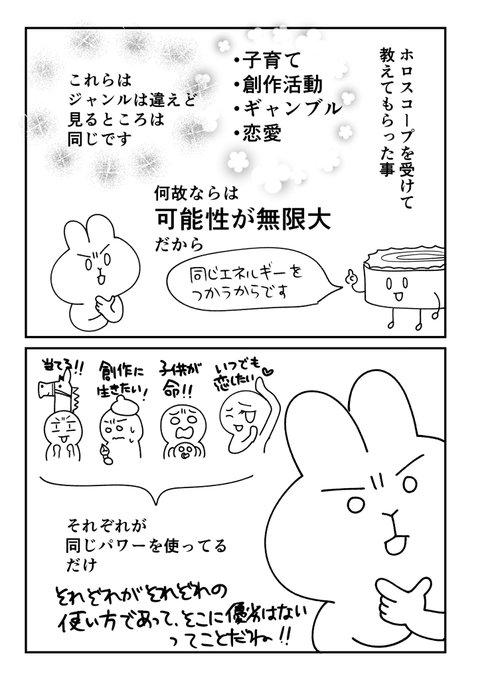 ホロスコープを受けて
教えてもらった事
・子育て
・創作活動
・ギャンブル
・恋愛
これらは
ジャンルは違えど
見るところは
同じです
何故ならは
可能性が無限大
だから
同じエネルギーを
つかうからです
当てろ!!
創作に
生きたい!
子供が
命!!
いつでも
恋したい♡
それぞれが
同じパワーを使ってる
だけ
それぞれがそれぞれの
使い方であって、そこに優劣はない
ってことだね!!